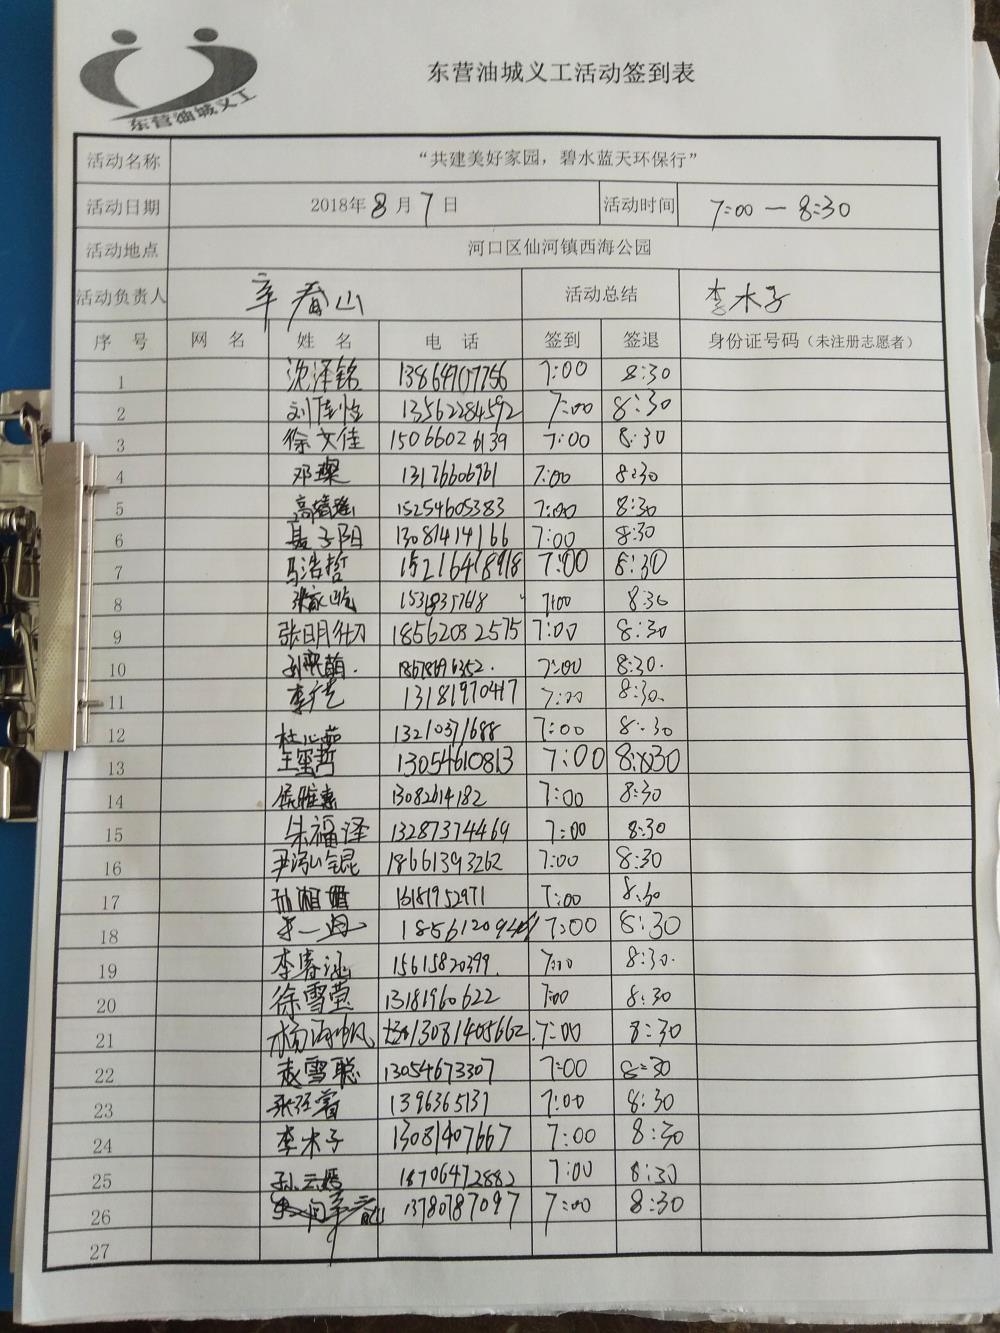 东营油城义工
东营油城义工活动签到表
活动名称 “共建美好家园，碧水蓝天环保行”
活动日期 2018年8月7日 活动时间 7:00—8:30
活动地点 河口区仙河镇西海公园
活动负责人 辛春山 活动总结 李木子
序号 网名 姓名 电话 签到 签退 身份证号码（未注册志愿者）
1 沈泽铭 13864707756 7:00 8:30
2 刘佳怡 13562284592 7:00 8:30
3 徐文佳 15066026139 7:00 8:30
4 邓璨 13176606961 7:00 8:30
5 15254605383 7:00 8:30
6 聂子阳 13081414166 7:00 8:30
7 马浩哲 15216418918 7:00 8:30
8 7:00 8:30
9 张明仕 18562032575 7:00 8:30
10 7:00 8:30.
11 李广艺 13181970417 7:00 8:30.
12 杜心茹 13210371688 7:00 8:30
13 王玺哲 13054610813 7:00 8:30
14 侯雅惠 13082614182 7:00 8:30
15 朱福泽 13287374469 7:00 8:30
16 18661393262 7:00 8:30
17 7:00 8:30
18 7:00 8:30
19 李春涵 15615820399. 7:00 8:30.
20 徐雪莹 13181960622 7:00 8:30
21 杨海帆 13081405662. 7:00 8:30
22 赵雪聪 13054673307 7:00 8:30
23 7:00 8:30
24 李木子 13081407667 7:00 8:30
25 孙云嫣 18706472882 7:00 8:30
26 13780787097 7:00 8:30
27